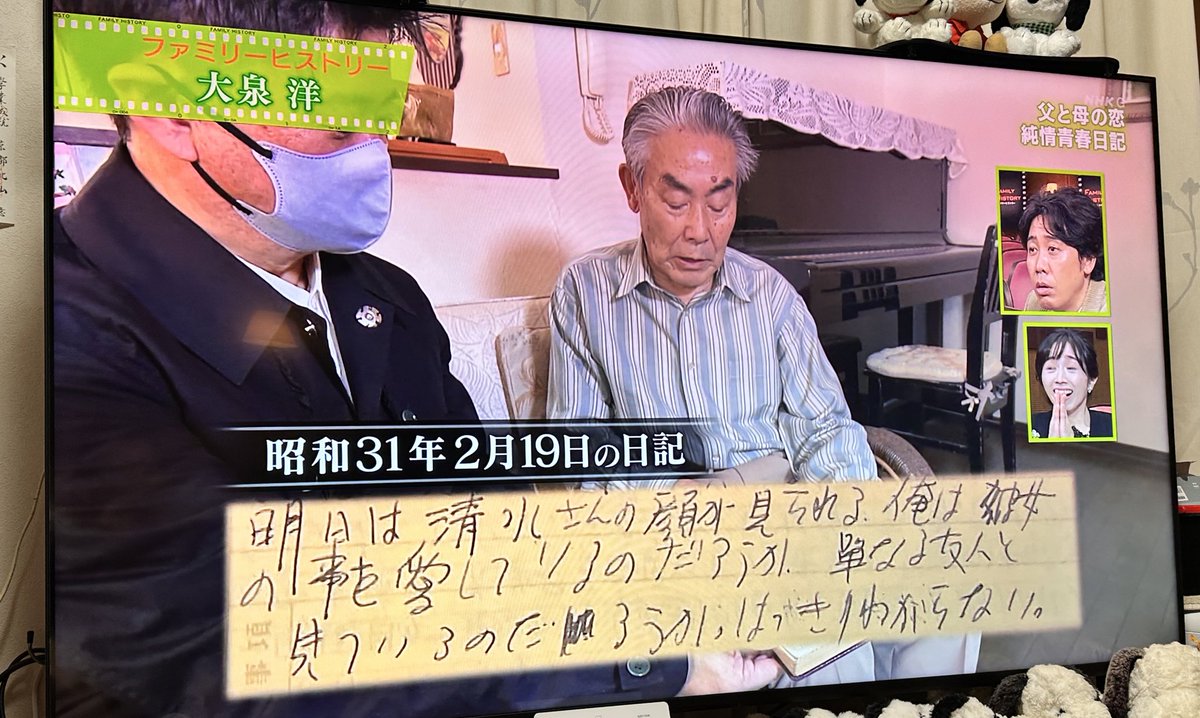 FAMILY HISTORY
ファミリーヒストリー
大泉 洋
NHK G
父と母の恋
純情青春日記
昭和31年2月19日の日記
明日は清水さんの顔が見られる。俺は彼女
の事を愛しているのだろうか、単なる友人と
見ているのだろうか。はっきりわからない。
事項